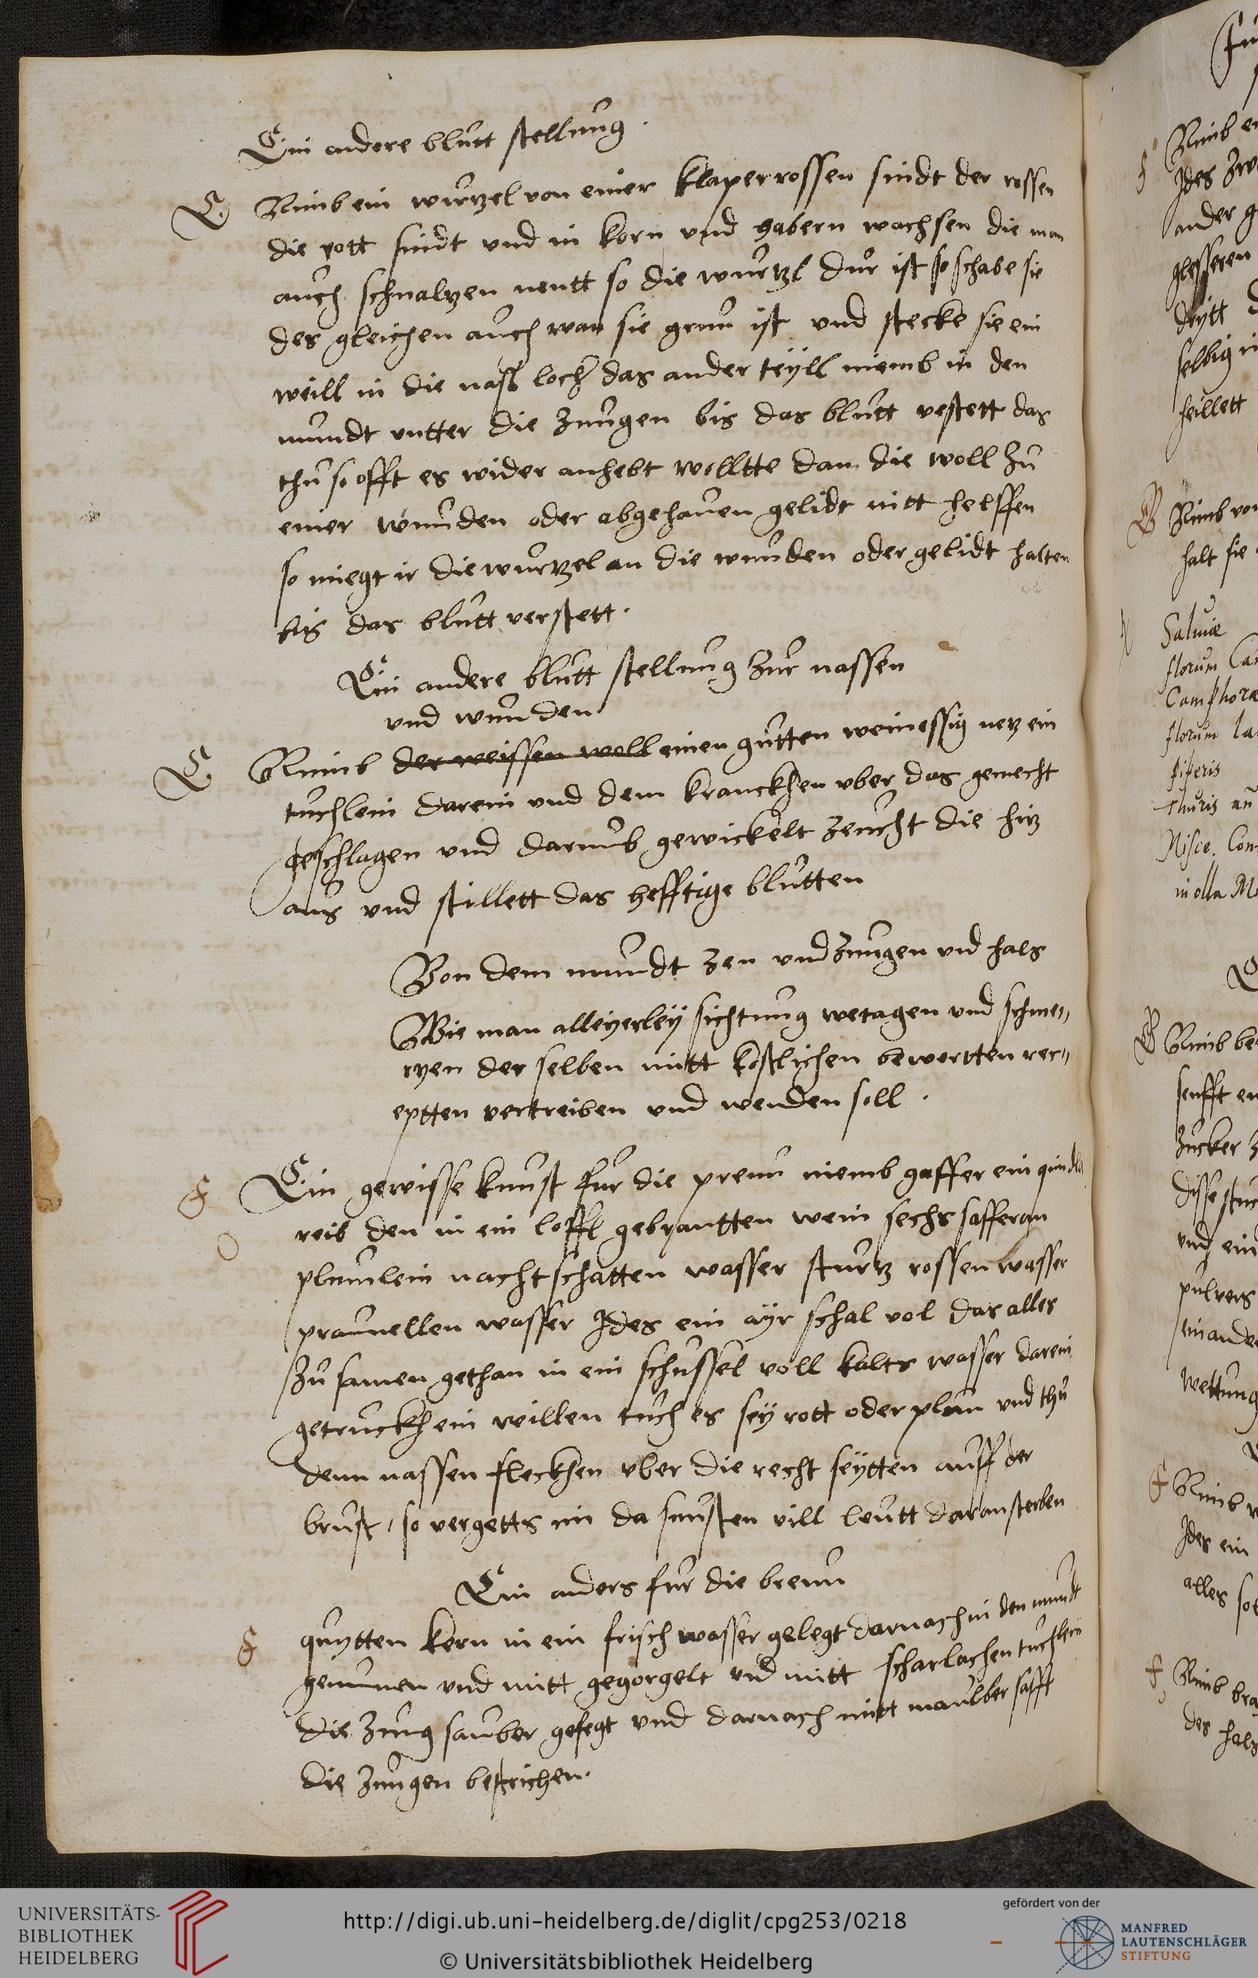 Ein andere blutt stellung.
E Nimb ein wurtzel von einer klaperrossen sindt der rossen
die rott sindt und in korn und habern wachsen die man
auch schnaltzen nentt so die wurtzl dur ist so schabe sie
des gleichen auch wan sie grun ist und stecke sie ein
weill in die nasslocher das ander teyll niemb in den
mundt untter die zungen bis das blutt vestett das
thu so offt es wider anhebt wolltte dan die woll zu
einer wunden oder abgehauen gelidt nitt helffen
so miegt ir die wurtzel an die wunden oder gelidt halten
bis das blutt verstett.
Ein andere blutt stellung zur nassen
und wunden
E Nimb der weissen woll einen gutten weinessig netz ein
tuchlein darein und dem kranckhen uber das gemecht
geschlagen und darumb gewickelt zeucht die hitz
aus und stillett das hefftige blutten
Von dem mundt zen und zungen und hals
Wie man alleyerley sichtung wetagen und schmer„
tzen der selben mitt kostlichen bewertten rec„
eptten vertreiben und wenden soll.
E Ein gewisse kunst fur die preun niemb gaffer ein
reib den in ein loffl gebrantten wein sechs safferan
plumlein nachtschatten wasser sturtz rossen wasser
praunellen wasser Ides ein ayr schal vol das alles
zu samen gethan in ein schussel voll kalts wasser darein
getruckh ein willen tuch es sey rott oder plau und thu
denn nassen fleckhen uber die recht seytten auff der
brust, so vergetts im da sunsten vill leutt daran sterben
Ein anders fur die breun
E quytten kern in ein frisch wasser gelegt darnach in den mundt
genumen und mitt gegorgelt und mitt scharlachen tuchlein
die zung sauber gefegt und darnach mitt maulber safft
die zungen bestrichen.
Nimb
Ides
ander
glesseren
dritt
selbig
heillett
Nimb von
halt sie
Saluiae
florum
Camphorae
florum
piperis
thuris
Misce.
in olla
Nimb
senfft
zucker
disse
und ein
pulvers
einander
Nimb
Ides ein
alles
Nimb
des hals
UNIVERSITÄTS-
BIBLIOTHEK
HEIDELBERG
http://digi.ub.uni-heidelberg.de/diglit/cpg253/0218
© Universitätsbibliothek Heidelberg
gefördert von der
MANFRED
LAUTENSCHLÄGER
STIFTUNG